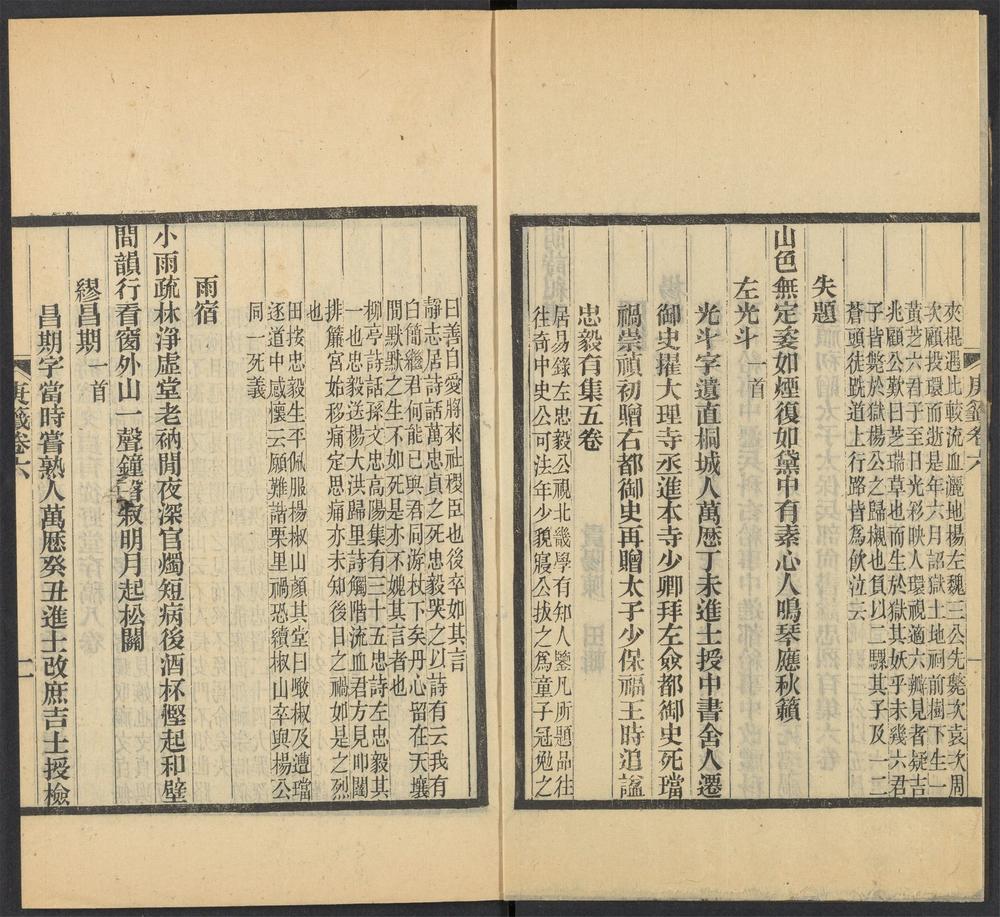 夾棍遇比較流血灑地楊左魏三公先斃次袁次周
次顧投環而逝是年六月詔獄土地祠前樹下生一
黃芝六君子至日光彩映人環視適六瓣見者疑吉
兆顧公歎曰芝瑞草也而生於獄其妖乎未幾六君
子皆斃於獄楊公之歸櫬也負以二騾其子及一二
蒼頭徒跣道上行路皆為飲泣云
失題
山色無定姿如煙復如黛中有素心人鳴琴應秋籟
左光斗一首
光斗字遺直桐城人萬曆丁未進士授中書舍人遷
御史擢大理寺丞進本寺少卿拜左僉都御史死璫
禍崇禎初贈右都御史再贈太子少保福王時追謚
忠毅有集五卷
居易錄左忠毅公視北畿學有知人鑒凡所題品往
往奇中史公可法年少貌寢公拔之為童子冠勉之
庚籤卷六
一
曰善自愛將來社稷臣也後卒如其言
靜志居詩話萬忠貞之死忠毅哭之以詩有云我有
白簡繼君何能已與君同游杖下矣丹心留在天壤
間默默之生不如死是亦不媿其言者也
柳亭詩話孫文忠高陽集有三十五忠詩左忠毅其
一也忠毅送楊大洪歸里詩蠲階流血君方見叩闥
排簾宮始移痛定思痛亦未知後日之禍如是之烈
也
田按忠毅生平佩服楊椒山顏其堂曰噉椒及遭璫
逐道中感懷云願難諧栗里禍恐續椒山卒與楊公
同一死義
雨宿
小雨疏林淨虛堂老衲閒夜深官燭短病後酒杯慳起和壁
間韻行看窗外山一聲鐘磬寂明月起松關
繆昌期一首
昌期字當時嘗熟人萬曆癸丑進士改庶吉士授檢
庚籤卷六
二